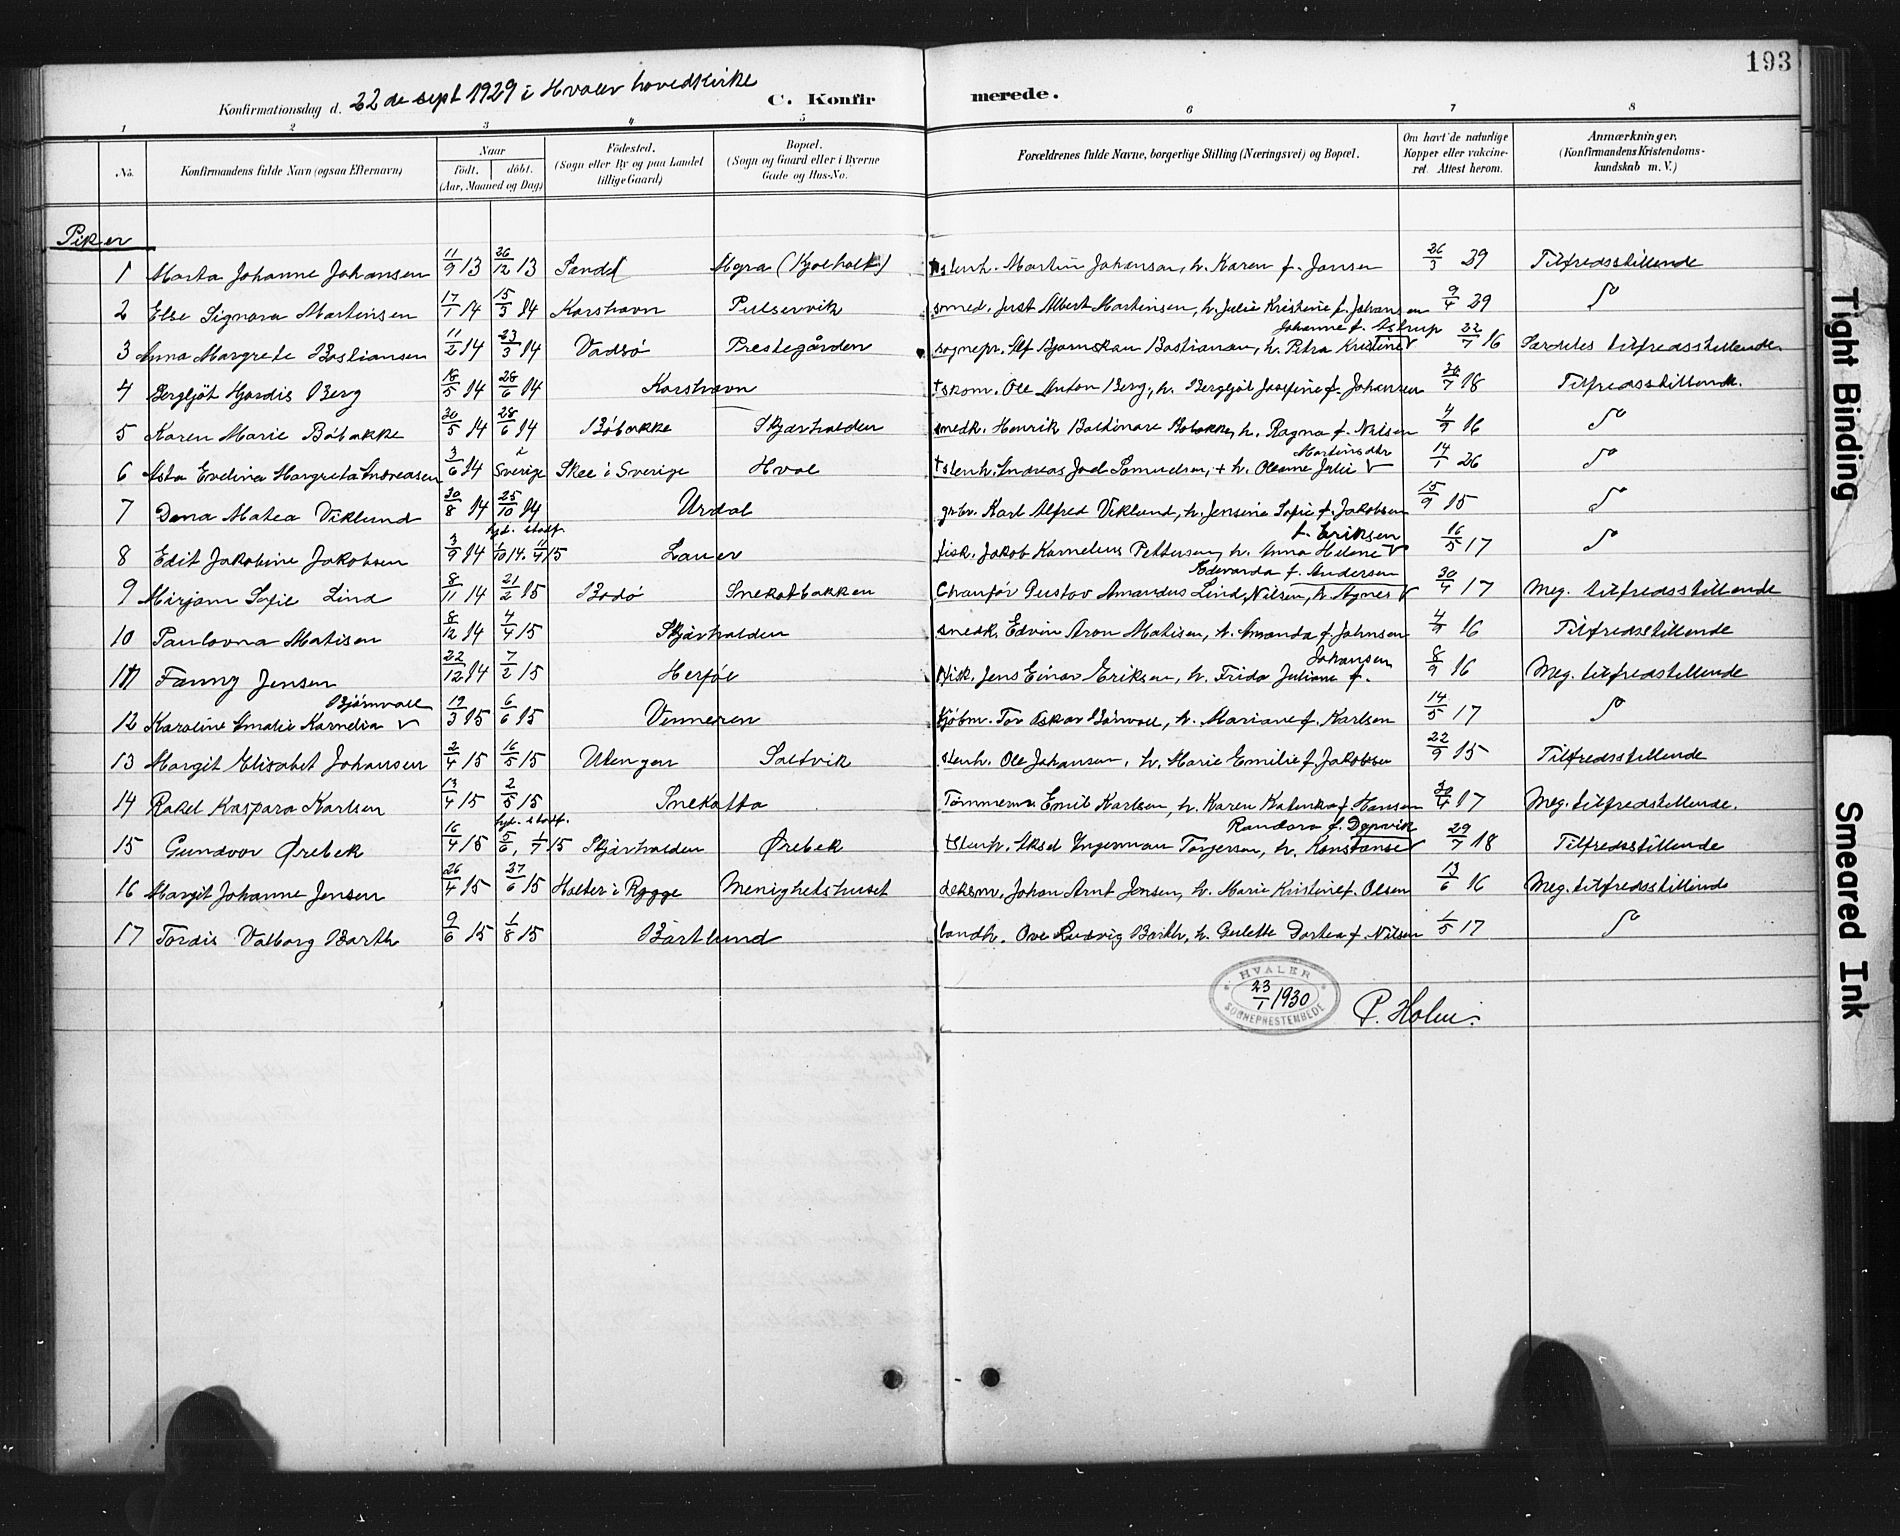 193
Konfirmationsdag d. 22 de sept 1929 i Hvaler hovedkirke C. Konfirmerede.
1 2 3 4 5 6 7 8
No. Konfirmandens fulde Navn (ogsaa Efternavn) Naar födt. döbt. (Aar, Maaned og Dag) Födested. (Sogn eller By og paa Landet tillige Gaard) Bopæl. (Sogn og Gaard eller i Byerne Gade og Hus-No. Forældrenes fulde Navne, borgerlige Stilling (Næringsvei) og Bopæl. Om havt de naturlige Kopper eller vakcineret. Attest herom. Anmærkninger. (Konfirmandens Kristendomskundskab m. V.)
Piker
1 Marta Johanne Johansen 11/9 13 26/12 13 Sand (Kjølholt) stenh. Martin Johansen, h. Karen f. Jansen 26/3 29 Tilfredsstillende
2 Else Signora Martinsen 17/1 14 15/3 14 Korshavn Pulservik smed. Just Albert Martinsen, h. Julie Kristine f. Johansen 9/4 29 〃
3 Anna Margrete Bastiansen 11/2 14 23/3 14 Vadsö Prestegården sognepr. Alf Bastiansen, h. Petra Kristine Johanne f. Astrup 22/7 16 Særdeles tilfredsstillende
4 Bergljöt Hjördis Berg 18/5 14 28/6 14 Korshavn † skom. Ole Anton Berg, h. Bergljöt Josefine f. Johansen 20/7 18 Tilfredsstillende.
5 Karen Marie Böbakke 20/5 14 28/6 14 Böbakke Skjærhalden snedk. Henrik Baldinare Böbakke, h. Ragna f. Nilsen 4/9 16 〃
6 Asta Evelina Margreta Andreasen 3/6 14 i Sverige Skee i Sverige Hval † stenh. Andreas Joel Samuelsen, + h. Oleane Julie Martinsdtr 14/1 26 〃
7 Dena Matea Viklund 30/8 14 25/10 14 Urdal grbr. Karl Alfred Viklund, h. Jensine Sofie f. Jakobsen 15/9 15 〃
8 Edit Jakobine Jakobsen 3/9 14 hjd. stadf. 1/10 14. 11/4 15 Lauer fisk. Jakob Kornelius Pettersen, h. Anna Helene f. Eriksen 16/5 17 〃
9 Mirjam Sofie Lind 8/11 14 21/2 15 Bodö Snekotbakken Chauför Gustav Amandus Lind, Nilsen, h. Agnes Edevarda f. Andersen 30/4 17 Meg. tilfredsstillende
10 Paulovna Matisen 8/12 14 4/4 15 Skjærhalden snedk. Edvin Aron Matisen, h. Amanda f. Johnsen 4/9 16 Tilfredsstillende
11 Fanny Jensen 22/12 14 7/2 15 Herföl fisk. Jens Einar Eriksen, h. Frida Juliane f. Johansen 8/9 16 Meg. tilfredsstillende
12 Karoline Amalie Kornelia Björnvall 19/3 15 6/6 15 Venneren kjöbm. Tor Oskar Börvall, h. Mariane f. Karlsen 14/5 17 〃
13 Margit Elisabet Johansen 2/4 15 16/5 15 Utengen Saltvik stenh. Ole Johansen, h. Marie Emilie f. Jakobsen 22/9 15 Tilfredsstillende
14 Rakel Kaspara Karlsen 13/4 15 2/5 15 Snekotta Tömmerm. Emil Karlsen, h. Karen Katinka f. Hansen 30/4 17 Meg. tilfredstillende.
15 Gundvor Ørebek 16/4 15 hjd. stadf. 5/6, 1/7 15 Skjærhalden Ørebek † stenh. Aksel Ingerman Torgersen, h. Konstanse Randora f. Dypvik 29/7 18 Tilfredsstillende
16 Margit Johanne Jensen 26/4 15 27/6 15 Halter i Rygge Menighetshuset deksm. Johan Arnt Jensen, h. Marie Kristine f. Olsen 13/6 16 Meg. tilfredsstillende
17 Tordis Valborg Barth 9/6 15 1/8 15 Bartlund landh. Ove Ludvig Barth, h. Gulette Dortea f. Nilsen 1/5 17 〃
HVALER
23/1 1930
SOGNEPRESTEMBEDE
P. Holm.
Tight Binding
Smeared Ink